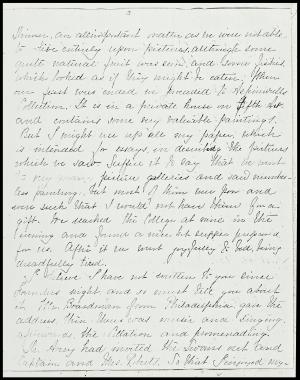 3
Dinner, an all important matter as we were not able
to live entirely upon pictures, although some
quite natural fruit was seen, and some fishes
which looked as if they might be eaten. When
our feast was ended we proceeded to Aspinwall's
Collection. It is in a private house on Fifth Ave
and contains some very valuable paintings.
But I might use up all my paper, which
is intended for essays, in describing the pictures
which we saw. Suffice it to say that we went
to very many picture galleries and saw number-
less paintings. But most of them were poor and
were such that I would not have them for a
gift. We reached the College at nine in the
evening and found a nice hot supper prepared
for us. After it we went gracefully to bed, being
dreadfully tired.
I believe I have not written to you since
Founders night, and so must tell you about
it. Mr. Boardman from Philadelphia gave the
address. Then there was music and singing
afterwards, the collation and promenading.
Dr. Avery had invited the Swans out and
Captain and Mrs. So that I enjoyed my-